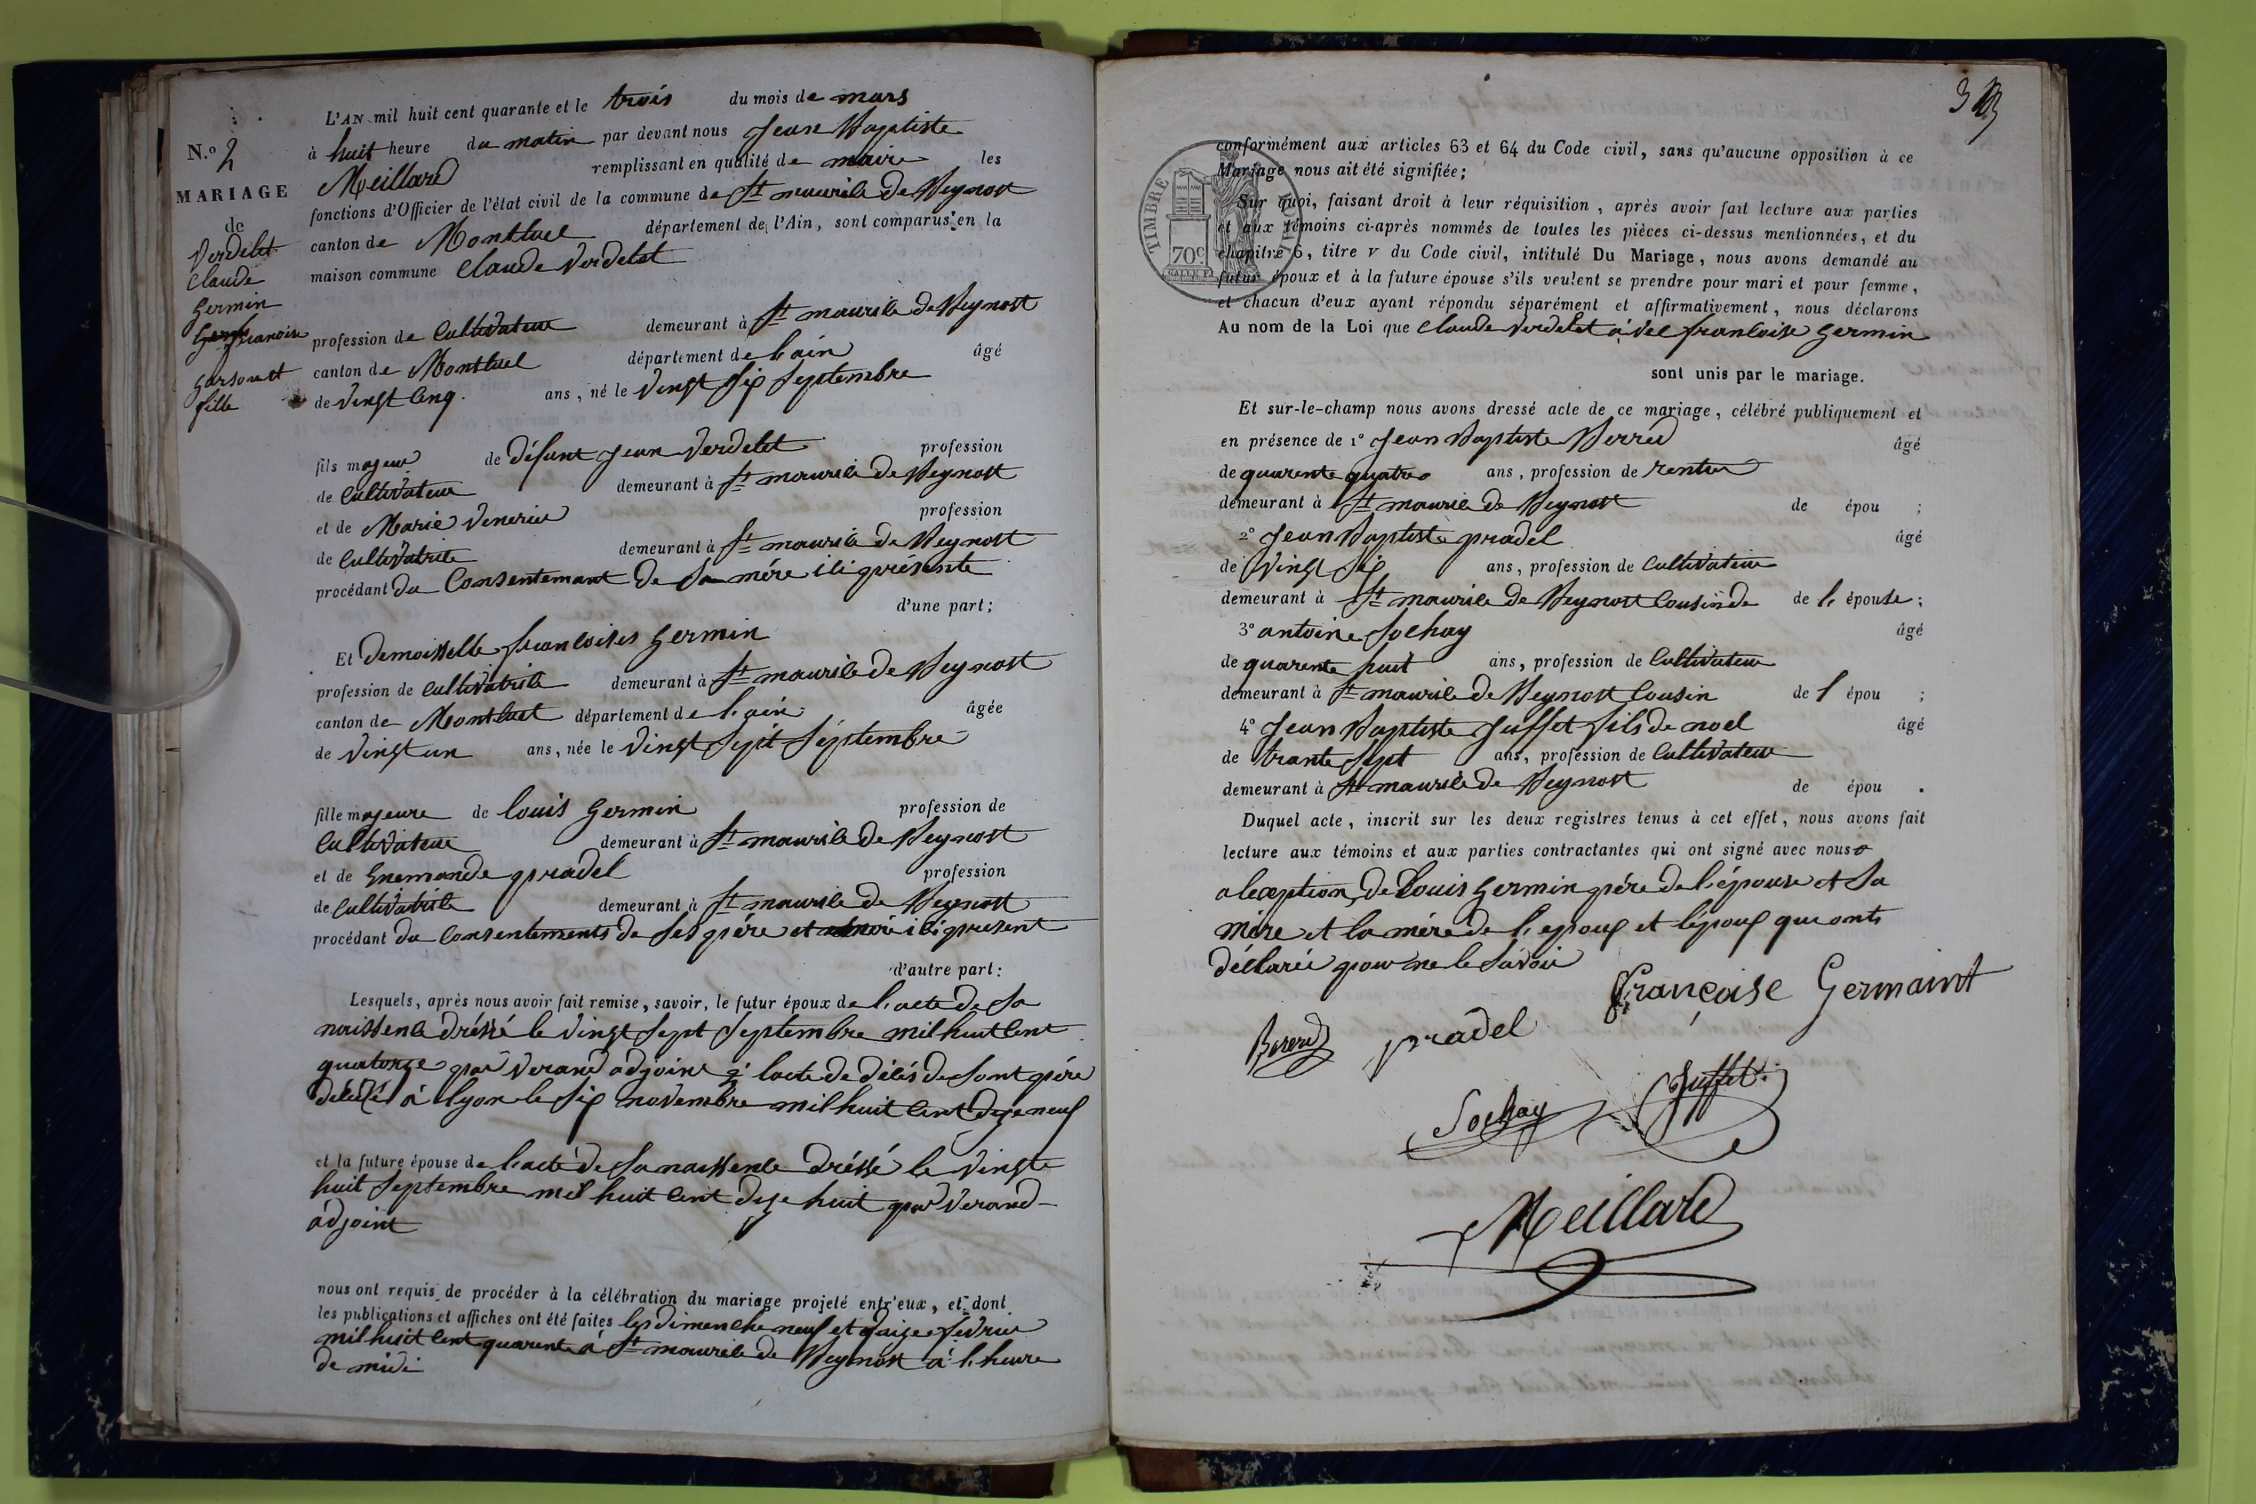 N.o 2
MARIAGE
de
Verdelet
Claude
Germin
francoise
garson et
fille
L'AN mil huit cent quarante et le trois du mois de mars
à huit heure du matin par devant nous Jean Baptiste
Meillard remplissant en qualité de maire les
fonctions d'Officier de l'état civil de la commune de St maurice de Beynost
canton de Montluel département de l'Ain, sont comparus en la
maison commune Claude Verdelet
profession de Cultivateur demeurant à St maurice de Beynost
canton de Montluel département de l'ain âgé
de vingt cinq ans, né le vingt six Septembre
fils majeur de défunt Jean Verdelet profession
de Cultivateur demeurant à St maurice de Beynost
et de Marie profession
de Cultivatrice demeurant à St maurice de Beynost
procédant du Consentemant de Sa mére ici présente
d'une part;
Et demoisselle francoises Germin
profession de Cultivatrice demeurant à St maurice de Beynost
canton de Montluel département de l'ain âgée
de vingt un ans, née le vingt Sept Séptembre
fille majeure de Louis Germin profession de
Cultivateur demeurant à St maurice de Beynost
et de Enemonde pradel profession
de Cultivatrice demeurant à St maurice de Beynost
procédant du Consentements de Ses pére et mére ici present
d'autre part:
Lesquels, après nous avoir fait remise, savoir, le futur époux de l'acte de Sa
naissence dréssé le vingt Sept Septembre mil huit cent
quatorze par Verand adjoint & l'acte de décés de Sont pére
décédé à lyon le Six novembre mil huit cent dize neuf
et la future épouse de l'acte de Sa naissence dréssé le vingte
huit Septembre mil huit cent dize huit par Verand
adjoint
nous ont requis de procéder à la célébration du mariage projeté entr'eux, et dont
les publications et affiches ont été faites les dimenche neuf et Saize fevrier
mil huit cent quarente à St maurice de Beynost à l'heure
de midi
3
TIMBRE ROYAL
70c
conformément aux articles 63 et 64 du Code civil, sans qu'aucune opposition à ce
Mariage nous ait été signifiée;
Sur quoi, faisant droit à leur réquisition, après avoir fait lecture aux parties
et aux témoins ci-après nommés de toutes les pièces ci-dessus mentionnées, et du
chapitre 6, titre V du Code civil, intitulé Du Mariage, nous avons demandé au
futur époux et à la future épouse s'ils veulent se prendre pour mari et pour femme,
et chacun d'eux ayant répondu séparément et affirmativement, nous déclarons
Au nom de la Loi que Claude Verdelet & francoise Germin
sont unis par le mariage.
Et sur-le-champ nous avons dressé acte de ce mariage, célébré publiquement et
en présence de 1o Jean Baptiste âgé
de quarente quatre ans, profession de rentier
demeurant à St maurice de Beynost de épou ;
2o Jean Baptiste pradel âgé
de vingt Six ans, profession de Cultivateur
demeurant à St maurice de Beynost Cousin de de l' épouse;
3o antoine Sochay âgé
de quarente huit ans, profession de Cultivateur
demeurant à St maurice de Beynost Cousin de l' épou ;
4o Jean Baptiste Juffet fils de noel âgé
de trante Sept ans, profession de Cultivateur
demeurant à St maurice de Beynost de épou .
Duquel acte, inscrit sur les deux registres tenus à cet effet, nous avons fait
lecture aux témoins et aux parties contractantes qui ont signé avec nous
a l'exeption de Louis Germin pére de l'épouse et Sa
mére et la mére de l'epoux et l'époux qui onts
déclarée pour ne le Savoir
françoise Germaint
pradel
Sochay
Juffet
Meillard